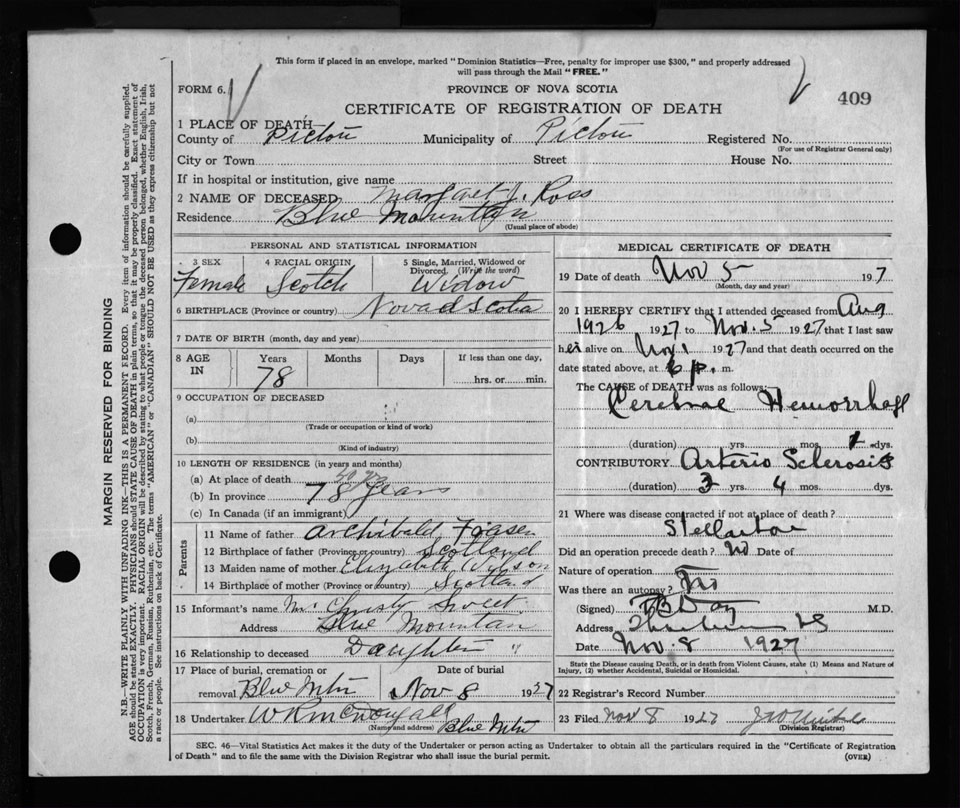 This form if placed in an envelope, marked "Dominion Statistics—Free, penalty for improper use $300," and properly addressed
will pass through the Mail "FREE."
FORM 6. PROVINCE OF NOVA SCOTIA
CERTIFICATE OF REGISTRATION OF DEATH 409
1 PLACE OF DEATH
County of Pictou Municipality of Pictou Registered No.
(For use of Registrar General only)
City or Town Street House No.
If in hospital or institution, give name
2 NAME OF DECEASED Margaret J. Ross
Residence Blue Mountain
(Usual place of abode)
MARGIN RESERVED FOR BINDING
N.B.—WRITE PLAINLY WITH UNFADING INK—THIS IS A PERMANENT RECORD. Every item of information should be carefully supplied.
AGE should be stated EXACTLY. PHYSICIANS should STATE CAUSE OF DEATH in plain terms, so that it may be properly classified. Exact statement of
OCCUPATION is very important. RACIAL ORIGIN will be described by stating to what people or tongue the deceased person belonged, whether English, Irish,
Scotch, French, German, Russian, Ruthenian, etc. The terms "AMERICAN" or "CANADIAN" SHOULD NOT BE USED as they express citizenship but not
a race or people. See instructions on back of Certificate.
PERSONAL AND STATISTICAL INFORMATION
3 SEX 4 RACIAL ORIGIN 5 Single, Married, Widowed or
Divorced. (Write the word)
Female Scotch Widow
6 BIRTHPLACE (Province or country) Nova Scotia
7 DATE OF BIRTH (month, day and year)
8 AGE IN Years Months Days If less than one day,
78 hrs. or min.
9 OCCUPATION OF DECEASED
(a)
(Trade or occupation or kind of work)
(b)
(Kind of industry)
10 LENGTH OF RESIDENCE (in years and months)
(a) At place of death
(b) In province 78 Years
(c) In Canada (if an immigrant)
Parents
11 Name of father Archibald Fraser
12 Birthplace of father (Province or country) Scotland
13 Maiden name of mother Elizabeth
14 Birthplace of mother (Province or country) Scotland
15 Informant's name Mrs Christy Sweet
Address Blue Mountain
16 Relationship to deceased Daughter "
17 Place of burial, cremation or Date of burial
removal Blue Mtn Nov 8 1927
18 Undertaker W R McDougall
(Name and address) Blue Mtn
MEDICAL CERTIFICATE OF DEATH
19 Date of death Nov 5 1927
(Month, day and year)
20 I HEREBY CERTIFY that I attended deceased from Aug
1926 1927 to Nov. 5 1927 that I last saw
her alive on Nov 1 1927 and that death occurred on the
date stated above, at 6 p. m.
The CAUSE of DEATH was as follows:
Cerebral Hemorrhage
(duration) yrs. mos. 1 dys.
CONTRIBUTORY Arterio Sclerosis
(duration) 3 yrs. 4 mos. dys.
21 Where was disease contracted if not at place of death?
Stellarton
Did an operation precede death? No Date of
Nature of operation
Was there an autopsy? No
(Signed) Day M.D.
Address NS
Date Nov. 8 1927
State the Disease causing Death, or in death from Violent Causes, state (1) Means and Nature of
Injury, (2) whether Accidental, Suicidal or Homicidal.
22 Registrar's Record Number
23 Filed Nov 8 1927
(Division Registrar)
SEC. 46—Vital Statistics Act makes it the duty of the Undertaker or person acting as Undertaker to obtain all the particulars required in the "Certificate of Registration
of Death" and to file the same with the Division Registrar who shall issue the burial permit. (OVER)